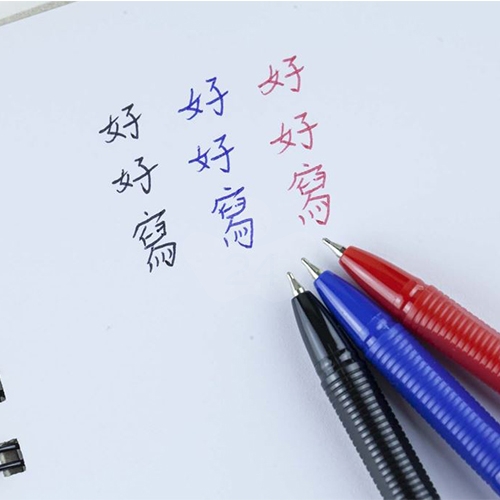 好好寫
好好寫
好好寫